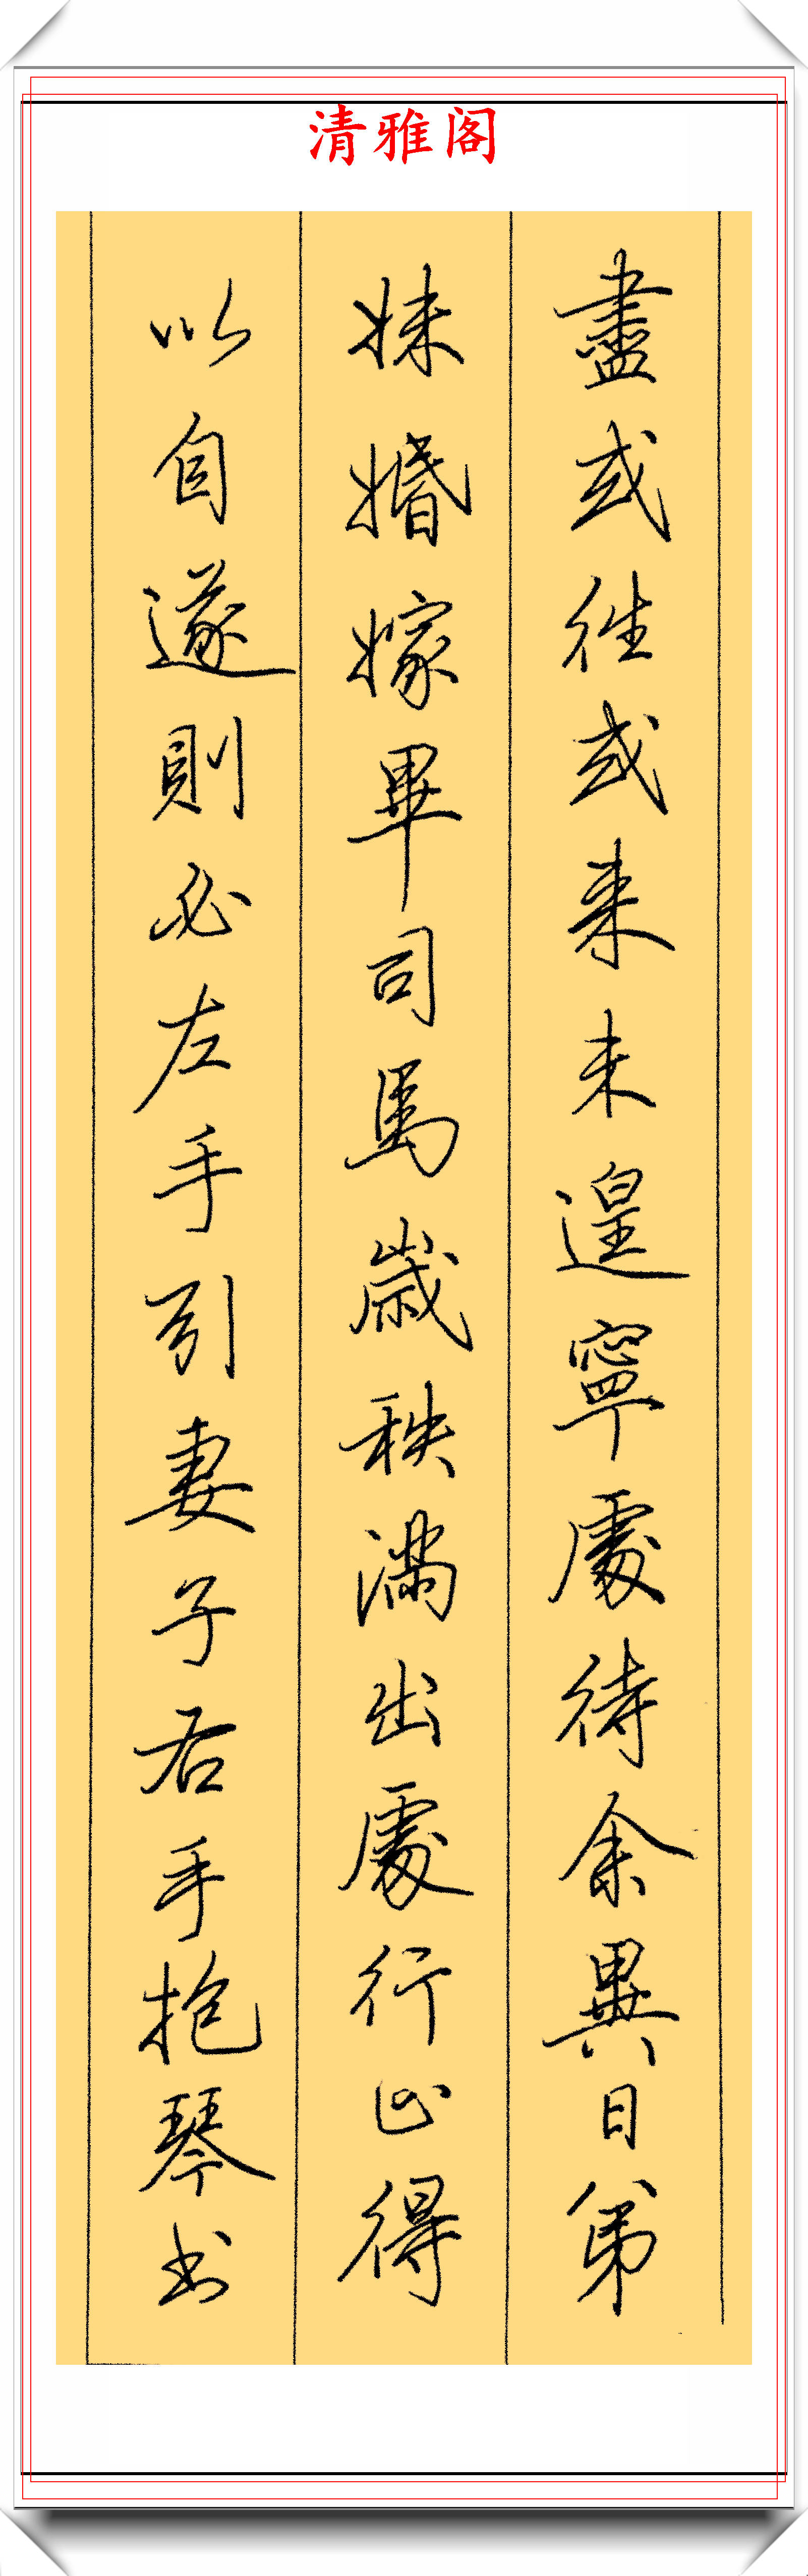 清雅阁
盡或往或来未遑寧處待余異日弟
妹婚嫁畢司馬歲秩満出處行止得
以自遂則必左手引妻子右手抱琴书